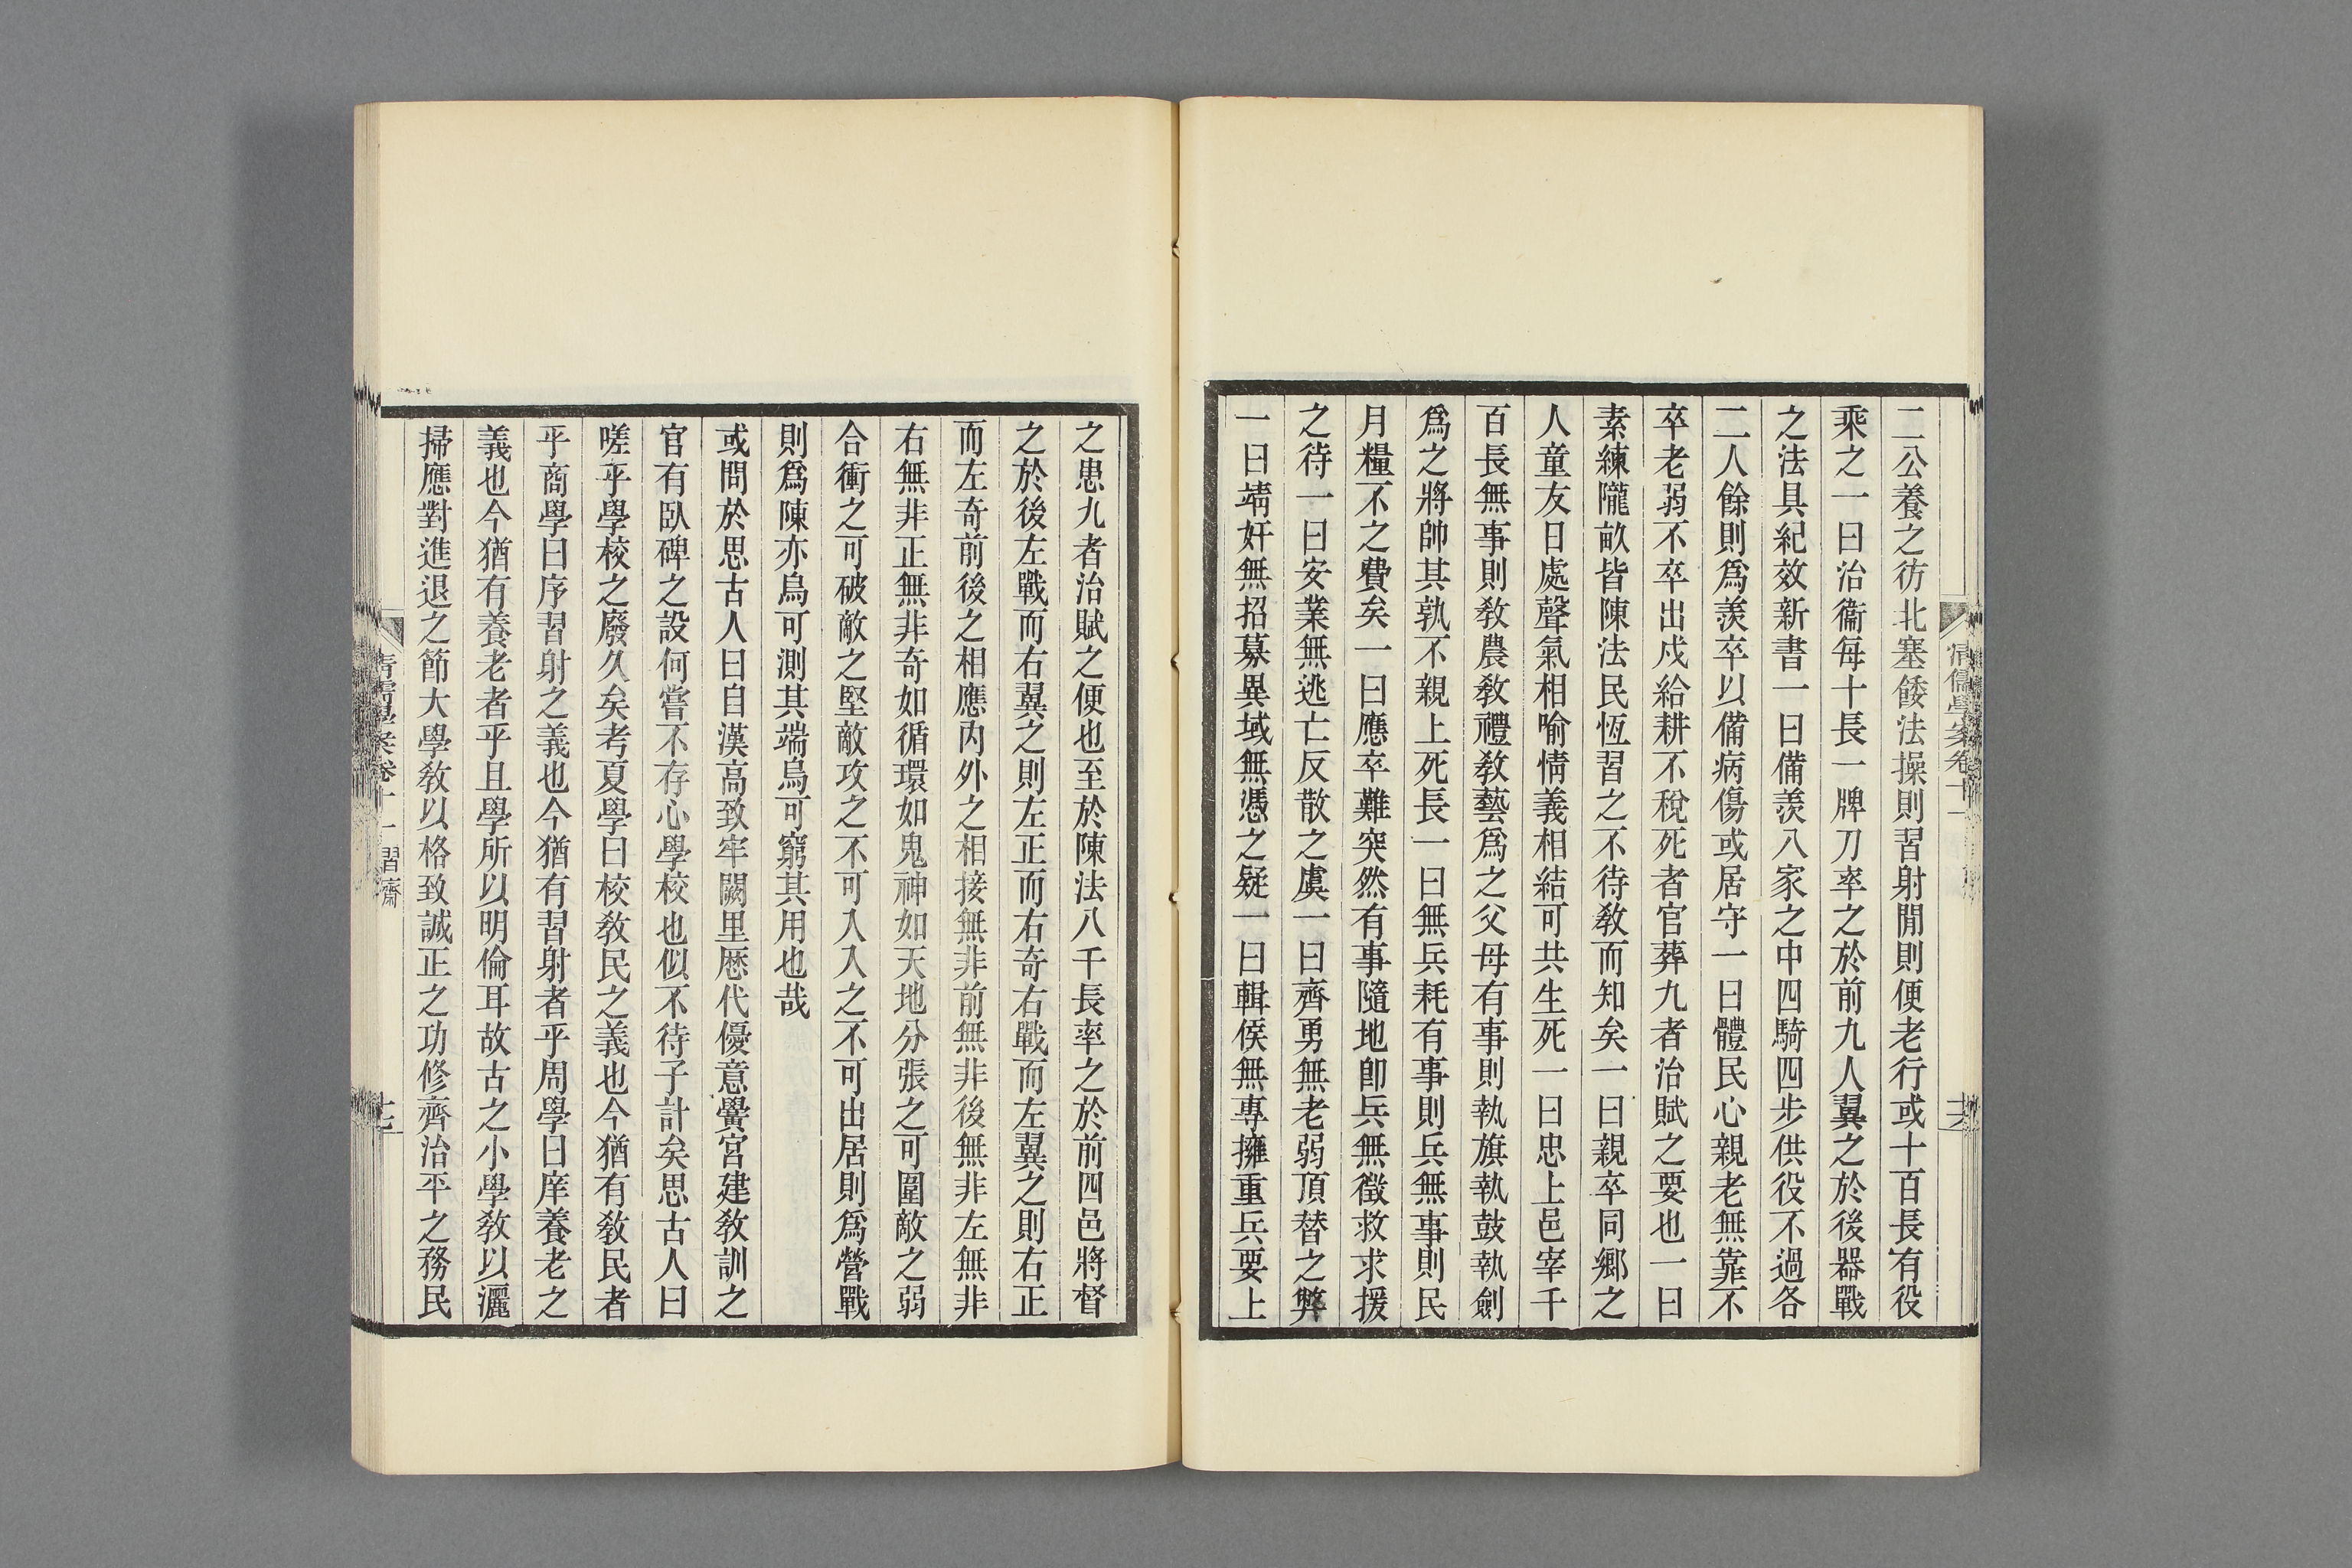 清儒學案卷十一
十六
二公養之彷北塞餧法操則習射閒則便老行或十百長有役
乘之一曰治衞每十長一牌刀率之於前九人翼之於後器戰
之法具紀效新書一曰備羨八家之中四騎四步供役不過各
二人餘則爲羨卒以備病傷或居守一曰體民心親老無靠不
卒老弱不卒出戍給耕不稅死者官葬九者治賦之要也一曰
素練隴畝皆陳法民恆習之不待敎而知矣一曰親卒同鄉之
人童友日處聲氣相喻情義相結可共生死一曰忠上邑宰千
百長無事則敎農敎禮敎藝爲之父母有事則執旗執鼓執劍
爲之將帥其孰不親上死長一曰無兵耗有事則兵無事則民
月糧不之費矣一曰應卒難突然有事隨地卽兵無徵救求援
之待一曰安業無逃亡反散之虞一曰齊勇無老弱頂替之弊
一曰靖奸無招募異域無憑之疑一曰輯侯無專擁重兵要上
之患九者治賦之便也至於陳法八千長率之於前四邑將督
之於後左戰而右翼之則左正而右奇右戰而左翼之則右正
而左奇前後之相應內外之相接無非前無非後無非左無非
右無非正無非奇如循環如鬼神如天地分張之可圍敵之弱
合衝之可破敵之堅敵攻之不可入入之不可出居則爲營戰
則爲陳亦烏可測其端烏可窮其用也哉
或問於思古人曰自漢高致牢闕里厯代優意黌宮建敎訓之
官有臥碑之設何嘗不存心學校也似不待子計矣思古人曰
嗟乎學校之廢久矣考夏學曰校敎民之義也今猶有敎民者
乎商學曰序習射之義也今猶有習射者乎周學曰庠養老之
義也今猶有養老者乎且學所以明倫耳故古之小學敎以灑
掃應對進退之節大學敎以格致誠正之功修齊治平之務民
清儒學案卷十一 習齋
十七